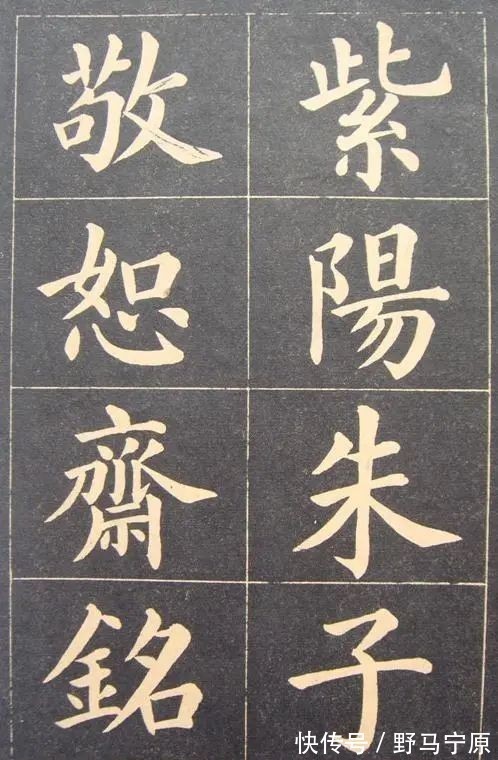 紫陽朱子
敬恕齋銘
快传号/野马宁原